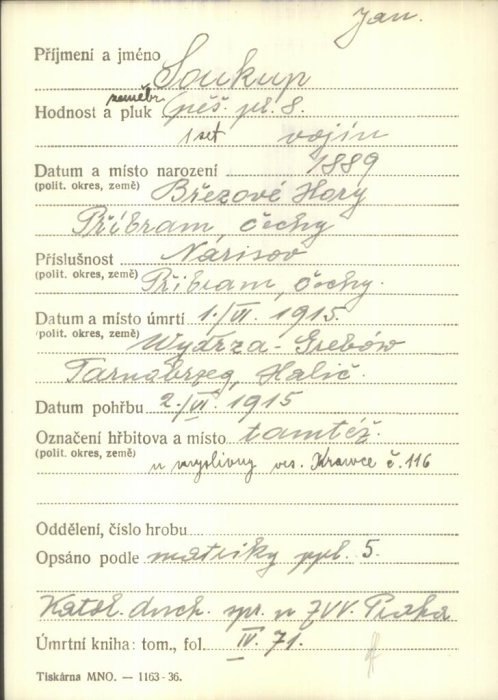 Jan.
Příjmení a jméno Soukup
Hodnost a pluk zeměbr. pěš. pl. 8.
1 set vojín
Datum a místo narození 1889
(polit. okres, země) Březové Hory
Příbram, Čechy
Příslušnost Nárisov
(polit. okres, země) Příbram, Čechy.
Datum a místo úmrtí 1./VI. 1915.
(polit. okres, země) Wydrza - Grebów
Tarnobrzeg, Halič.
Datum pohřbu 2./VI. 1915
Označení hřbitova a místo tamtéž.
(polit. okres, země) u myslivny ves. Krawce č. 116
Oddělení, číslo hrobu
Opsáno podle matriky ppl. 5.
Katol. duch. spr. u ZVV. Praha
Úmrtní kniha: tom., fol. IV. 71.
Tiskárna MNO. — 1163-36.